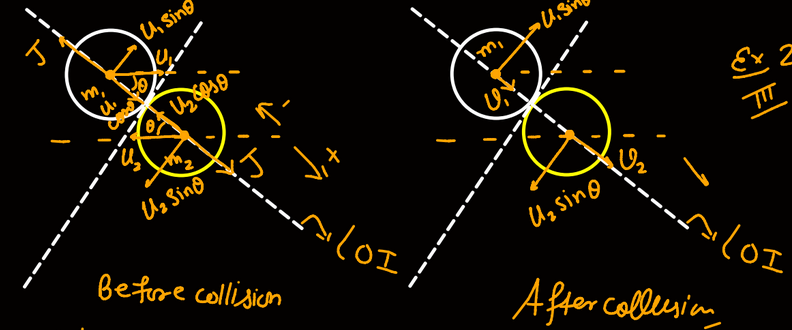 J
u₁sinθ
u₁
θ
m₁
u₁cosθ
u₂cosθ
θ
u₂
m₂
J
u₂sinθ
-
+
LOI
Before collision
u₁sinθ
m₁
v₁
v₂
u₂sinθ
LOI
After collusion
Ex 2
III